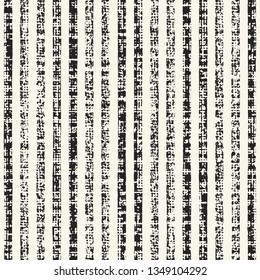 www.shutterstock.com · 1349104292